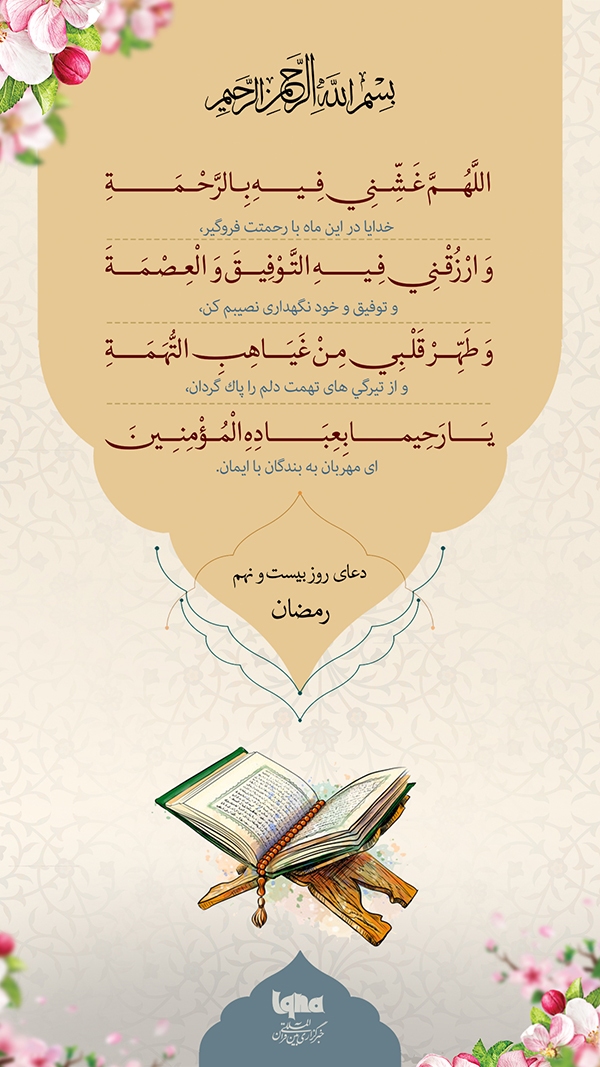 بِسْمِ اللَّهِ الرَّحْمَنِ الرَّحِيمِ
اللَّهُمَّ غَشِّنِي فِيهِ بِالرَّحْمَةِ
خدایا در این ماه با رحمتت فروگیر،
وَ ارْزُقْنِي فِيهِ التَّوْفِيقَ وَ الْعِصْمَةَ
و توفیق و خود نگهداری نصیبم کن،
وَ طَهِّرْ قَلْبِي مِنْ غَيَاهِبِ التُّهَمَةِ
و از تیرگي های تهمت دلم را پاك گردان،
يَا رَحِيما بِعِبَادِهِ الْمُؤْمِنِينَ
ای مهربان به بندگان با ایمان.
دعای روز بیست و نهم
رمضان
iqna
خبرگزاری بین المللی قرآن